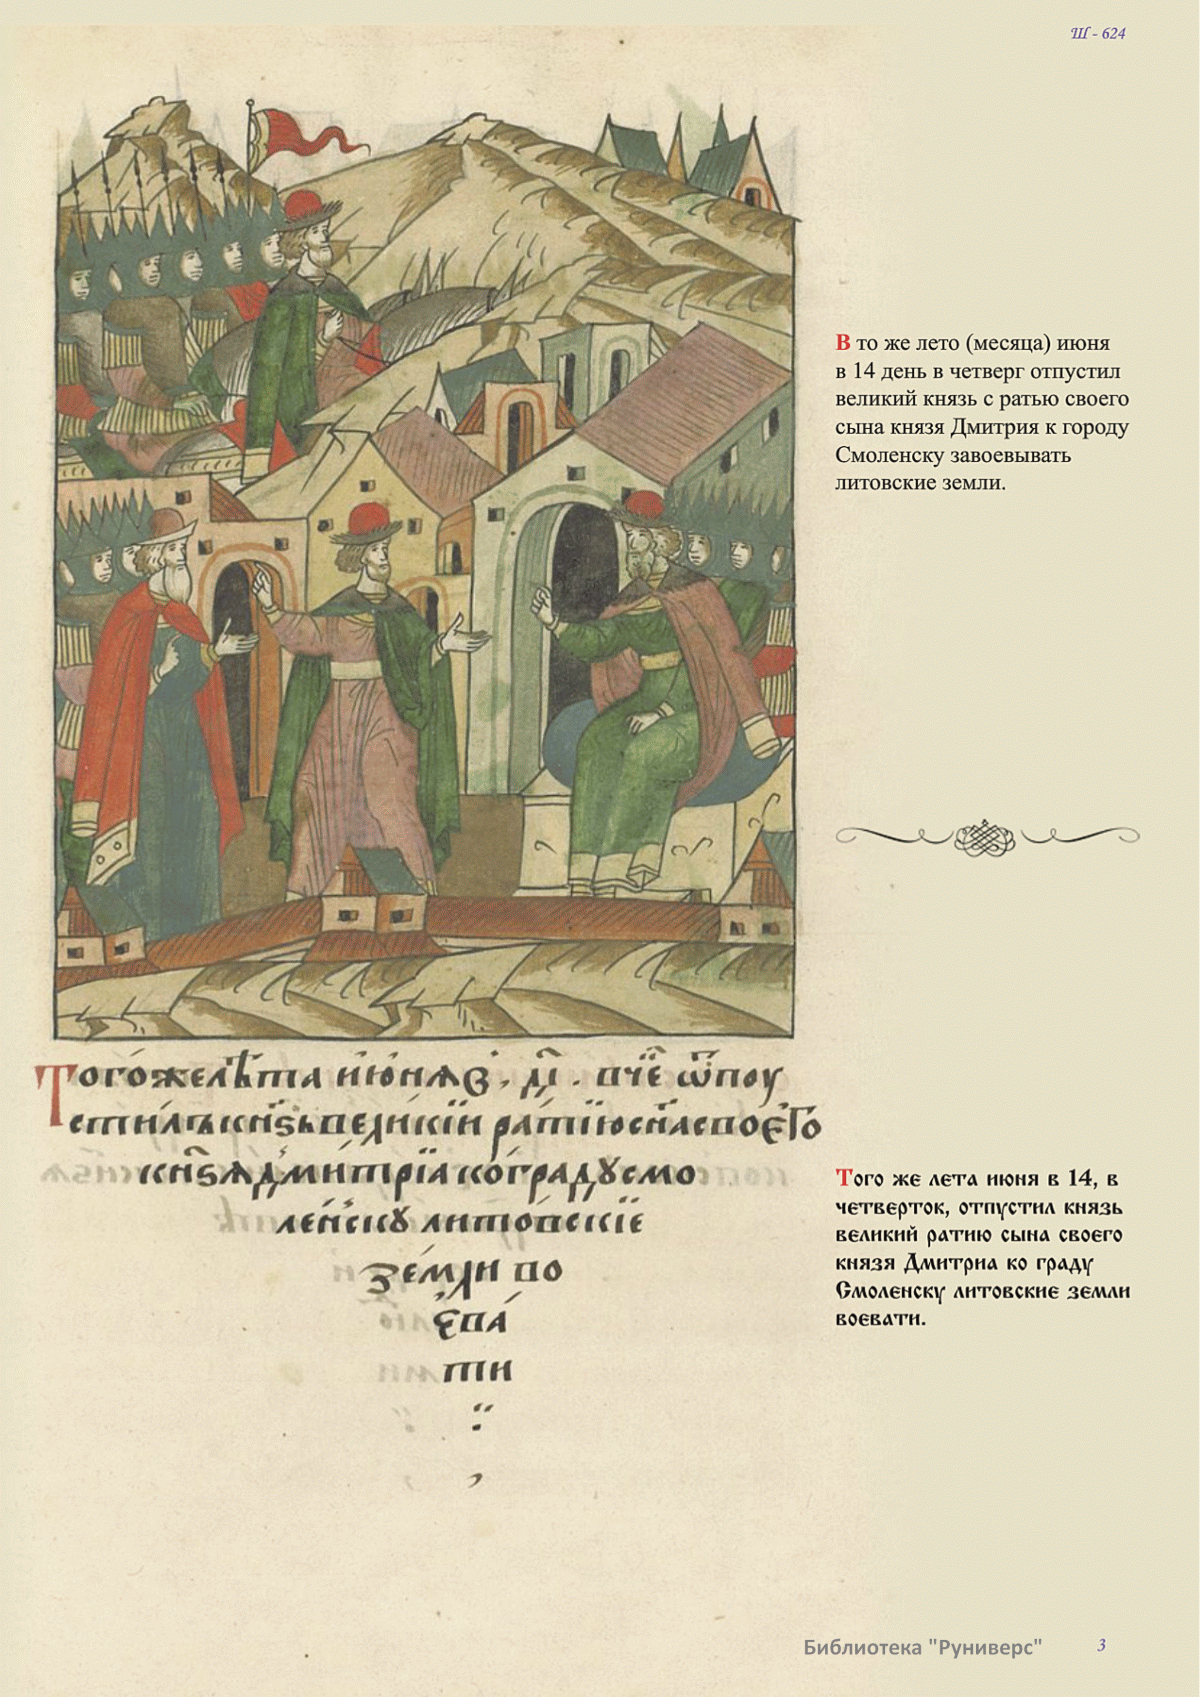 Ш - 624
В то же лето (месяца) июня
в 14 день в четверг отпустил
великий князь с ратью своего
сына князя Дмитрия к городу
Смоленску завоевывать
литовские земли.
Тогожелѣта июняв҃. д҃і. вче ѿпоу
стилъкнѕьвеликїи ратїюснасвоєго
кнѕядмитрїакоградꙋсмо
ленскꙋ литовскїе
земли во
єва
ти
Того же лета июня в 14, в
четверток, отпустил князь
великий ратию сына своего
князя Дмитриа ко граду
Смоленску литовские земли
воевати.
Библиотека "Руниверс"
3